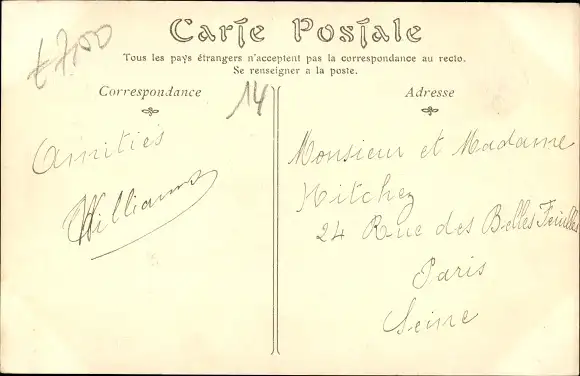 £7,00
Carte Postale
Tous les pays étrangers n'acceptent pas la correspondance au recto.
Se renseigner a la poste.
Correspondance
14
Amitiés
Williams
Adresse
Monsieur et Madame
Hitchez
24 Rue des Belles Feuilles
Paris
Seine